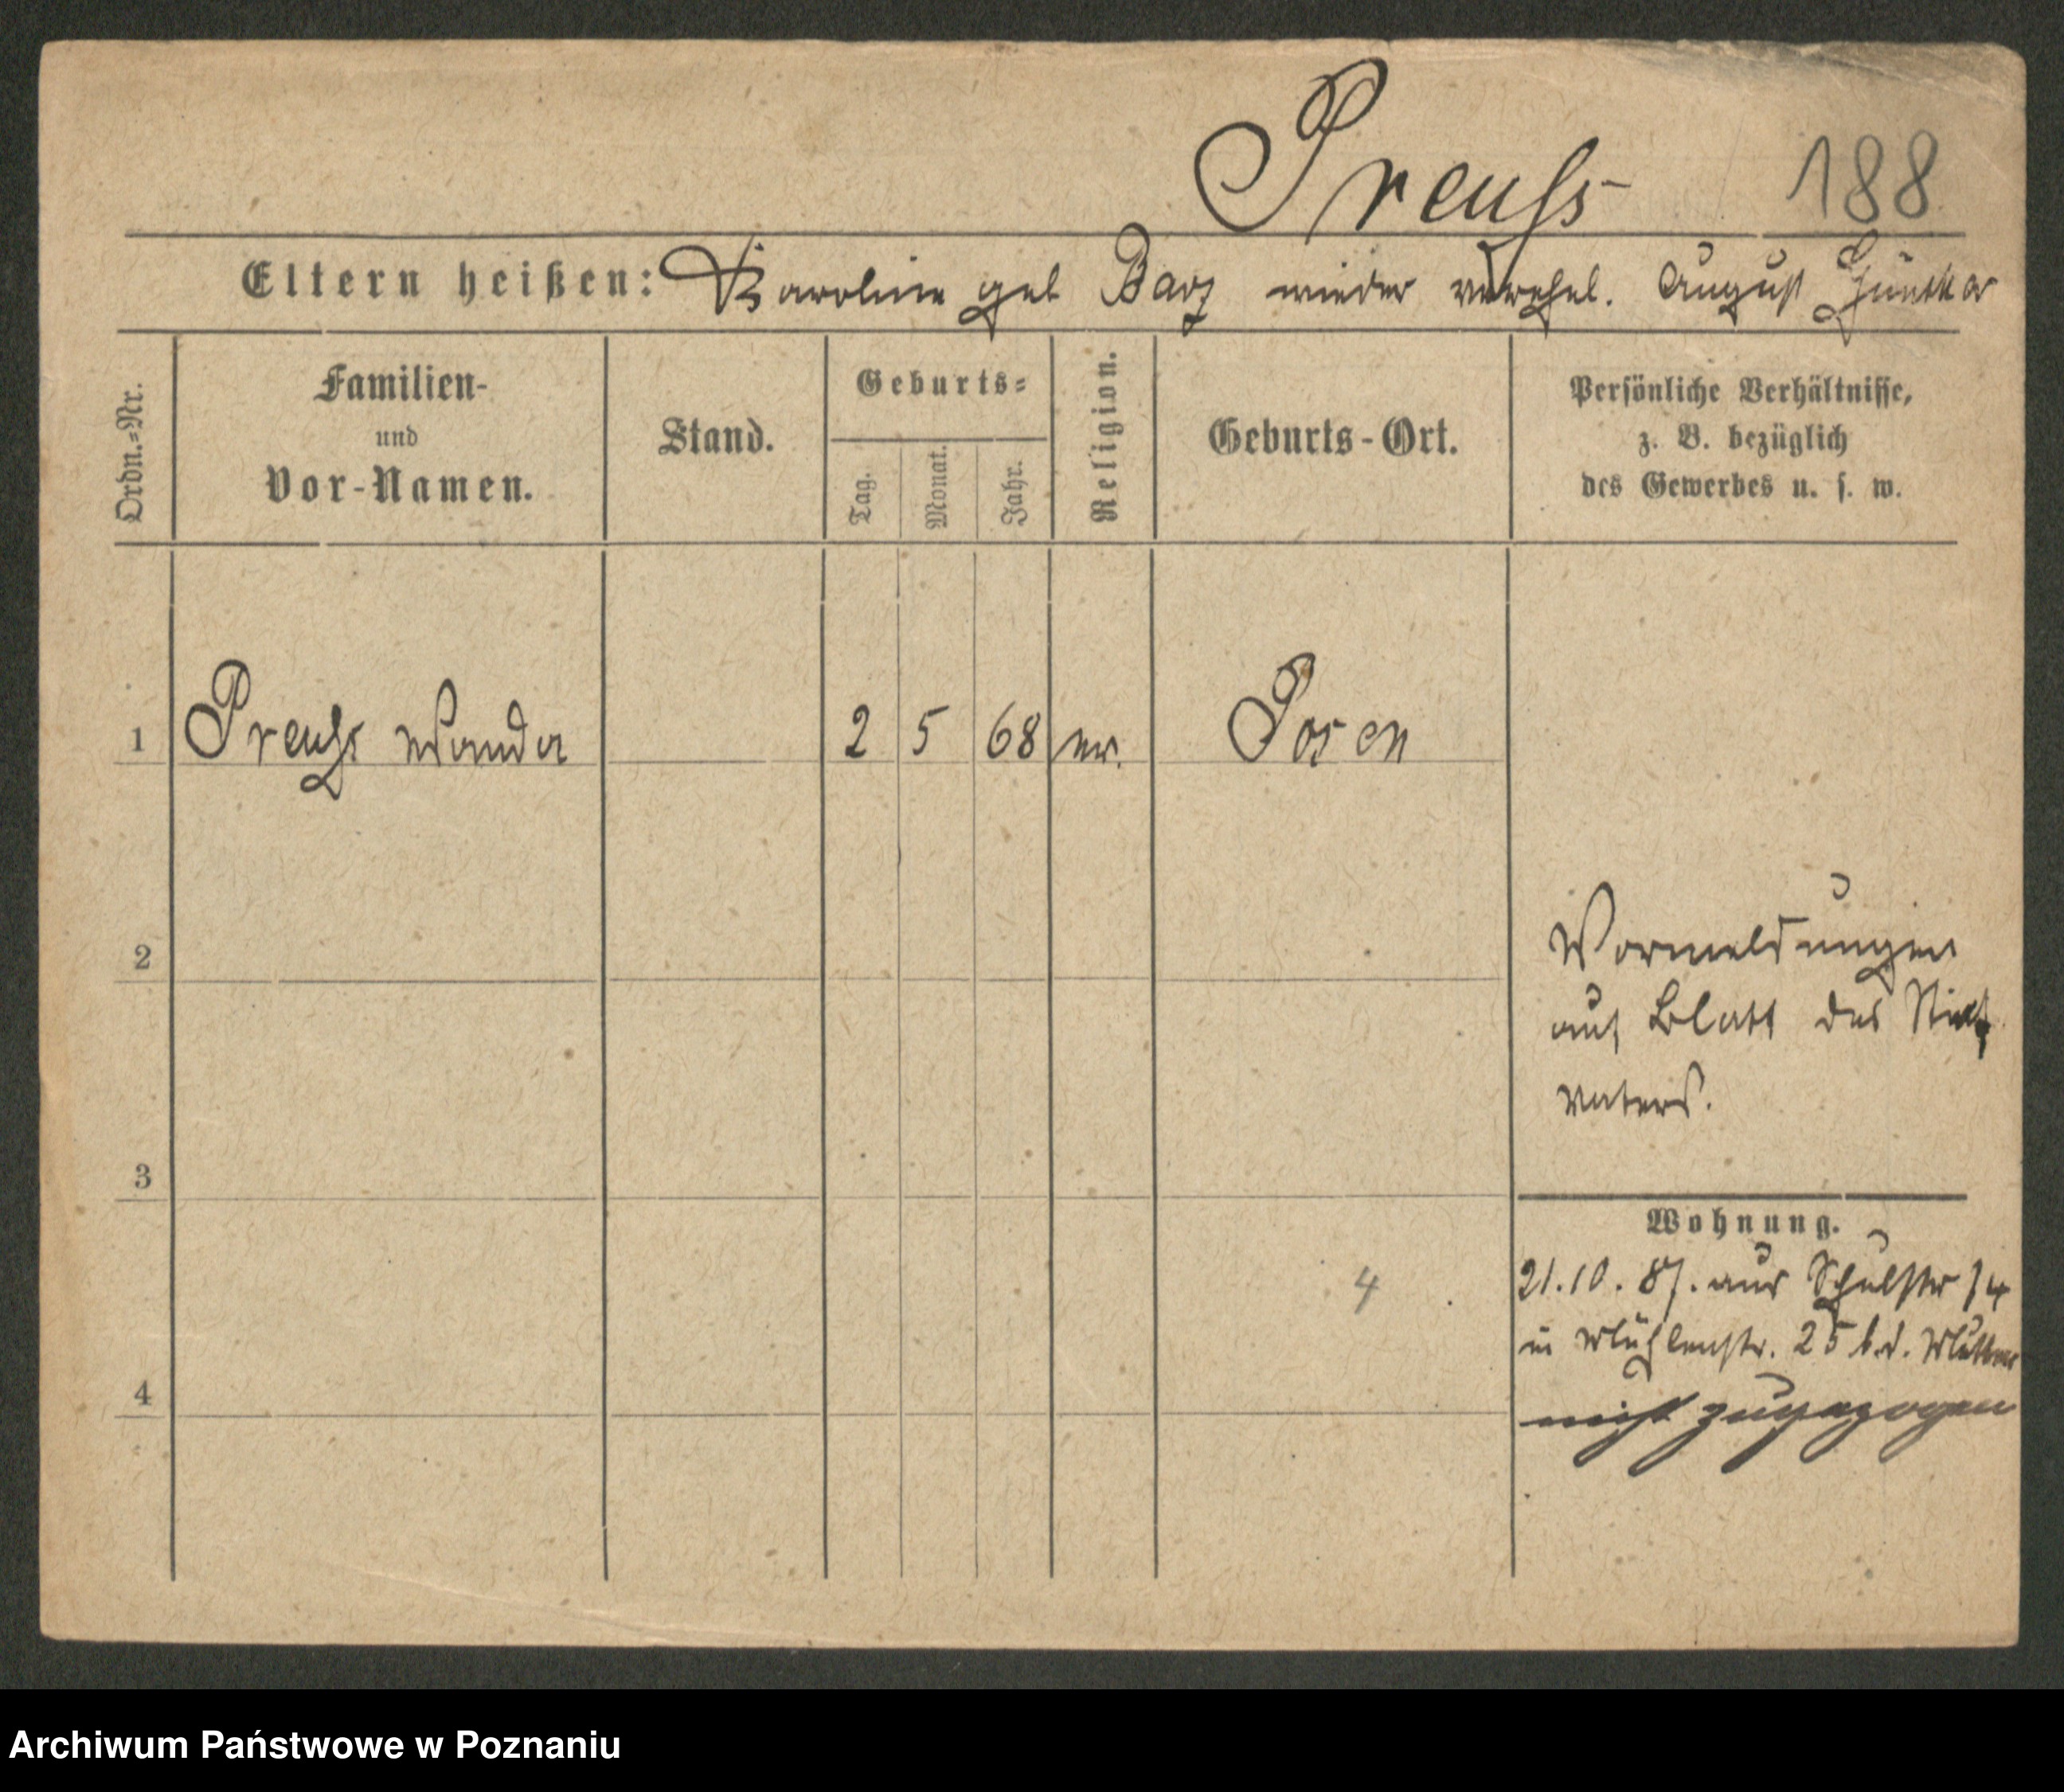 Preuß
188
Eltern heißen: Karoline geb Barz wieder verehel. August Günther
Ordn.=Nr.
Familien-
und
Vor-Namen.
Stand.
Geburts=
Tag.
Monat.
Jahr.
Religion.
Geburts-Ort.
Persönliche Verhältnisse,
z. B. bezüglich
des Gewerbes u. s. w.
1 Preuß Wanda 2 5 68 ev. Posen
2
Vormeldungen
auf Blatt des Stief
vaters.
3
Wohnung.
4
21.10.87. aus Schulstr 14
in Mühlenstr. 25 b.d. Mutter
4
nicht zugezogen
Archiwum Państwowe w Poznaniu